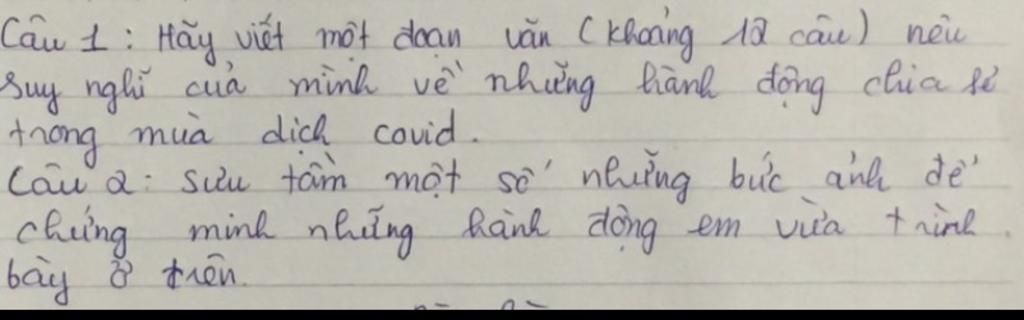 Câu 1 : Hãy viết một đoạn văn (khoảng 12 câu) nêu
suy nghĩ của mình về những hành động chia sẻ
trong mùa dịch covid.
Câu 2 : Sưu tầm một số những bức ảnh để
chứng minh những hành động em vừa trình
bày ở trên.